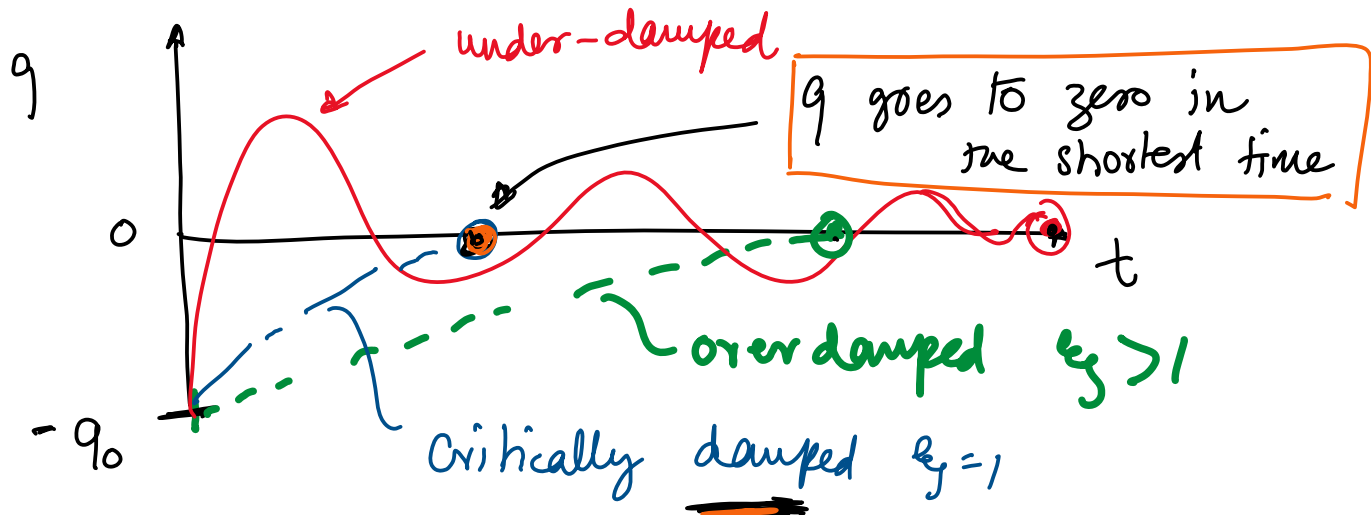 under-damped
q
q goes to zero in
the shortest time
0
t
over damped ξ > 1
- q₀
Critically damped ξ = 1